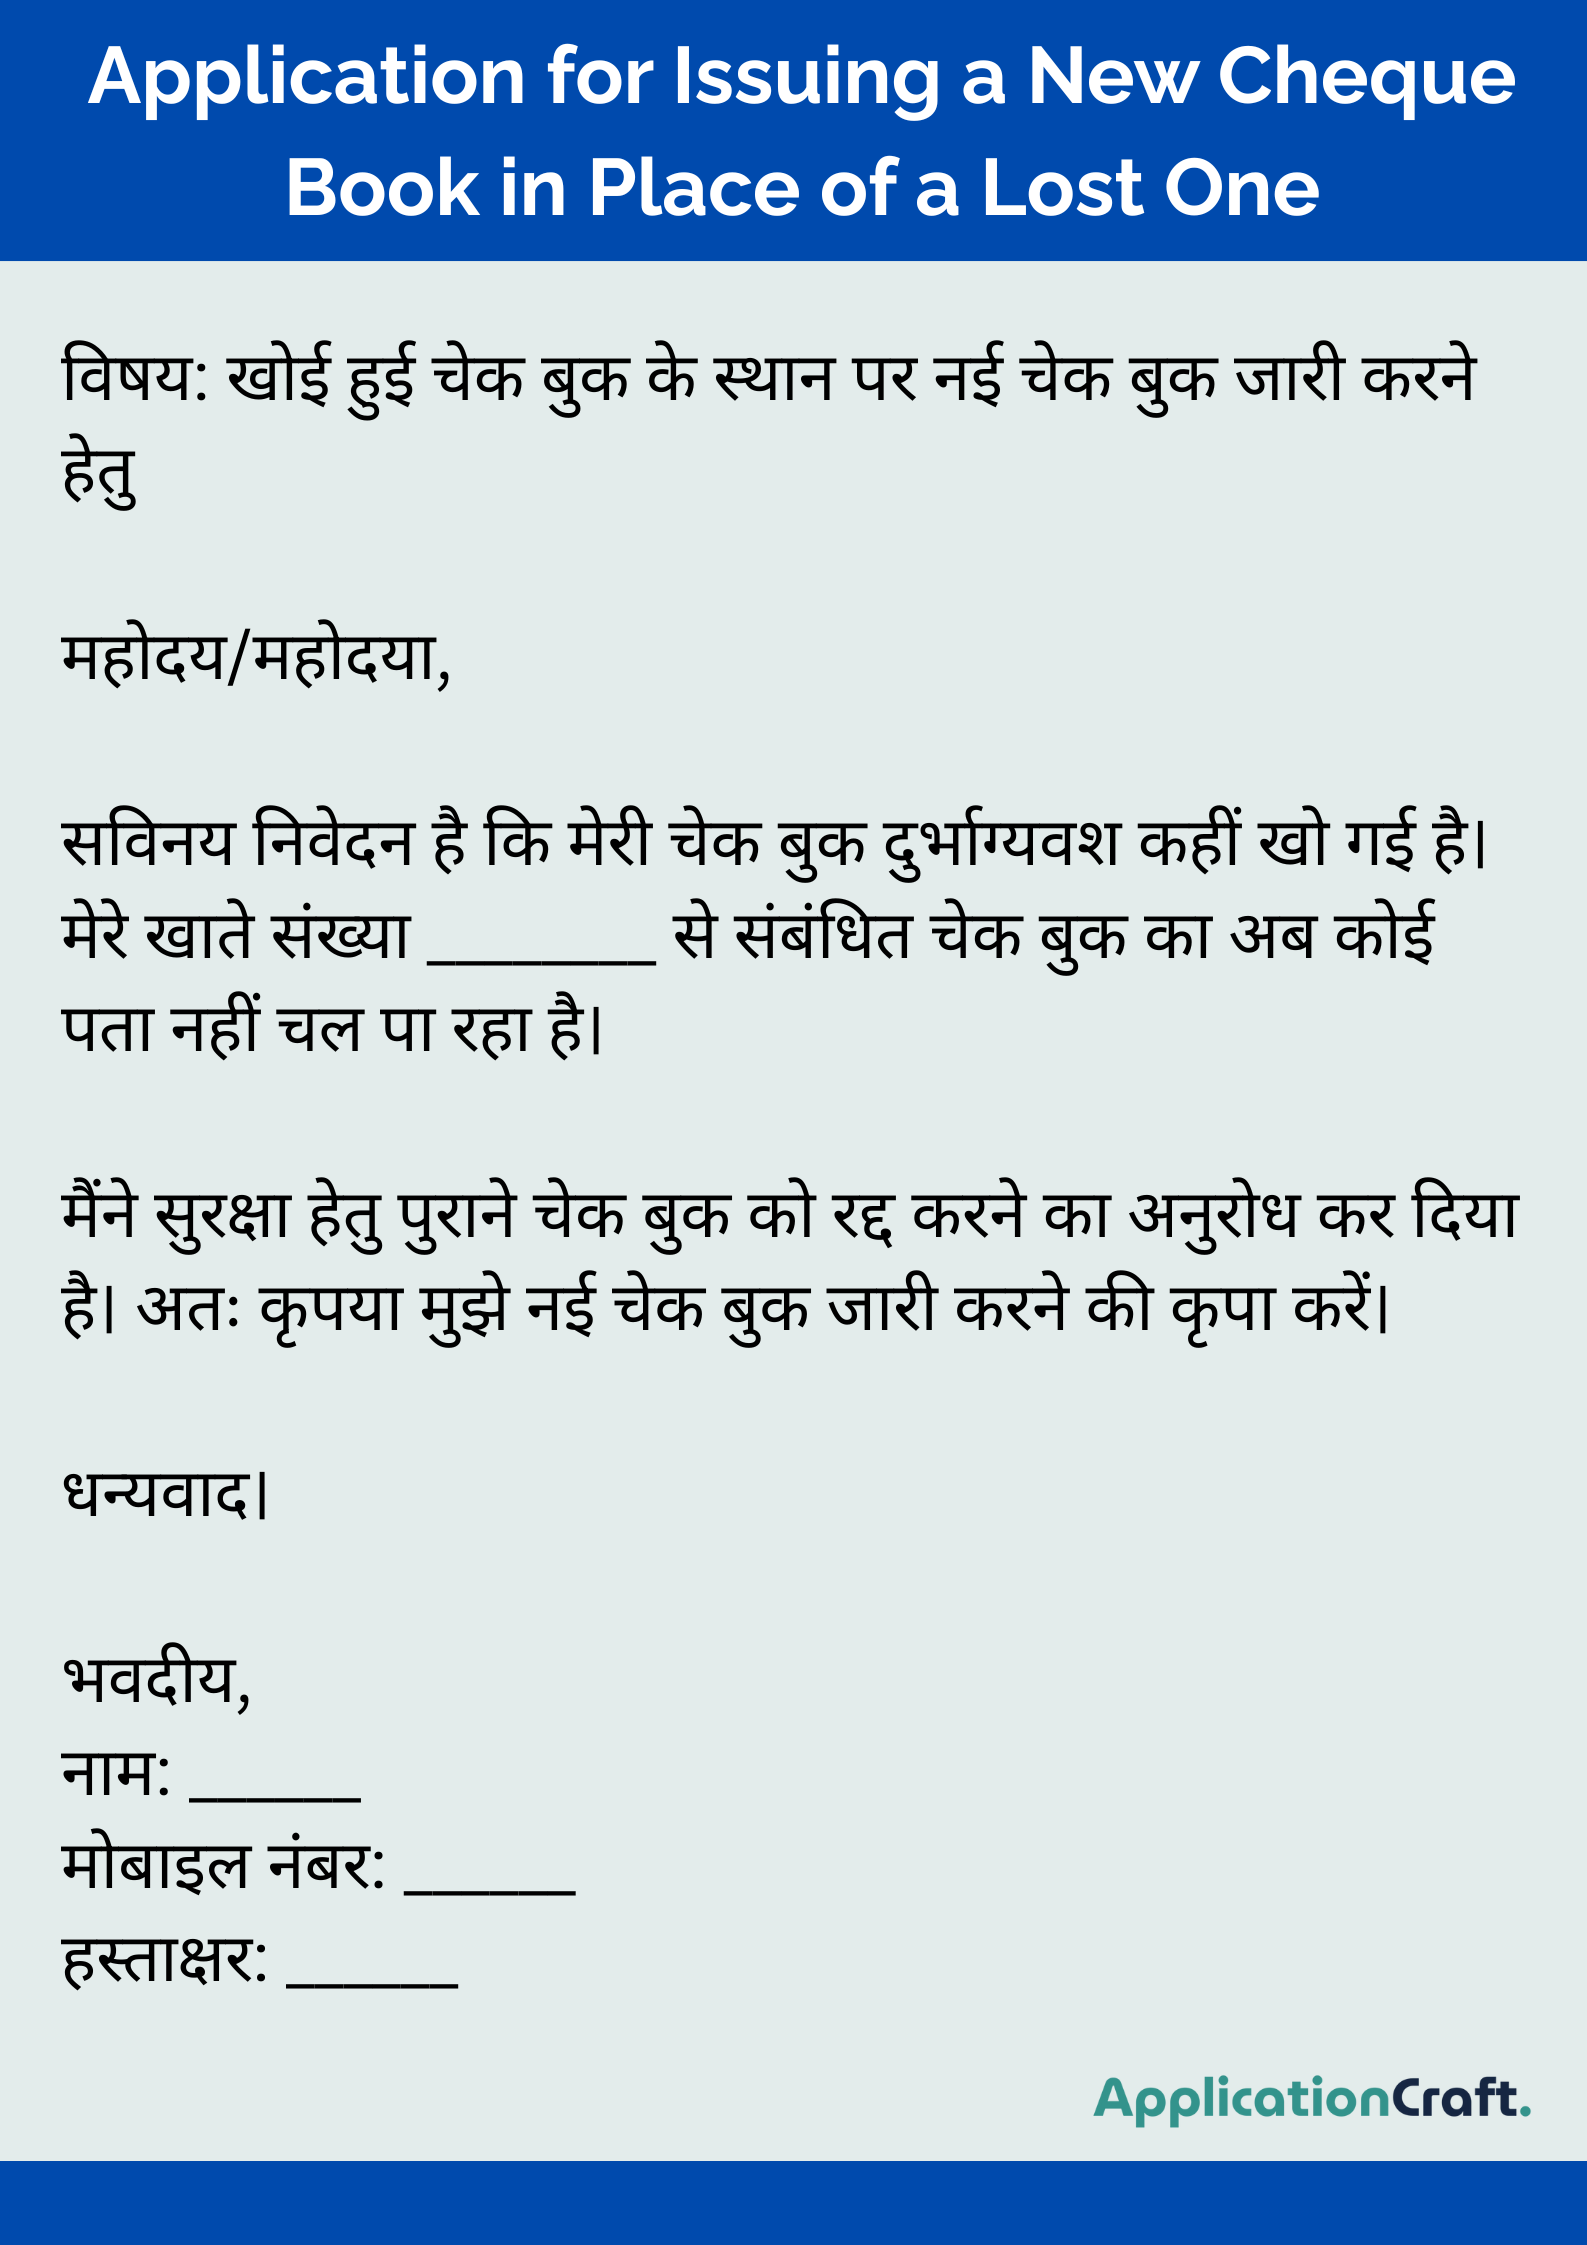 Application for Issuing a New Cheque
Book in Place of a Lost One
विषय: खोई हुई चेक बुक के स्थान पर नई चेक बुक जारी करने
हेतु
महोदय/महोदया,
सविनय निवेदन है कि मेरी चेक बुक दुर्भाग्यवश कहीं खो गई है।
मेरे खाते संख्या ________ से संबंधित चेक बुक का अब कोई
पता नहीं चल पा रहा है।
मैंने सुरक्षा हेतु पुराने चेक बुक को रद्द करने का अनुरोध कर दिया
है। अतः कृपया मुझे नई चेक बुक जारी करने की कृपा करें।
धन्यवाद।
भवदीय,
नाम: ______
मोबाइल नंबर: ______
हस्ताक्षर: ______
ApplicationCraft.